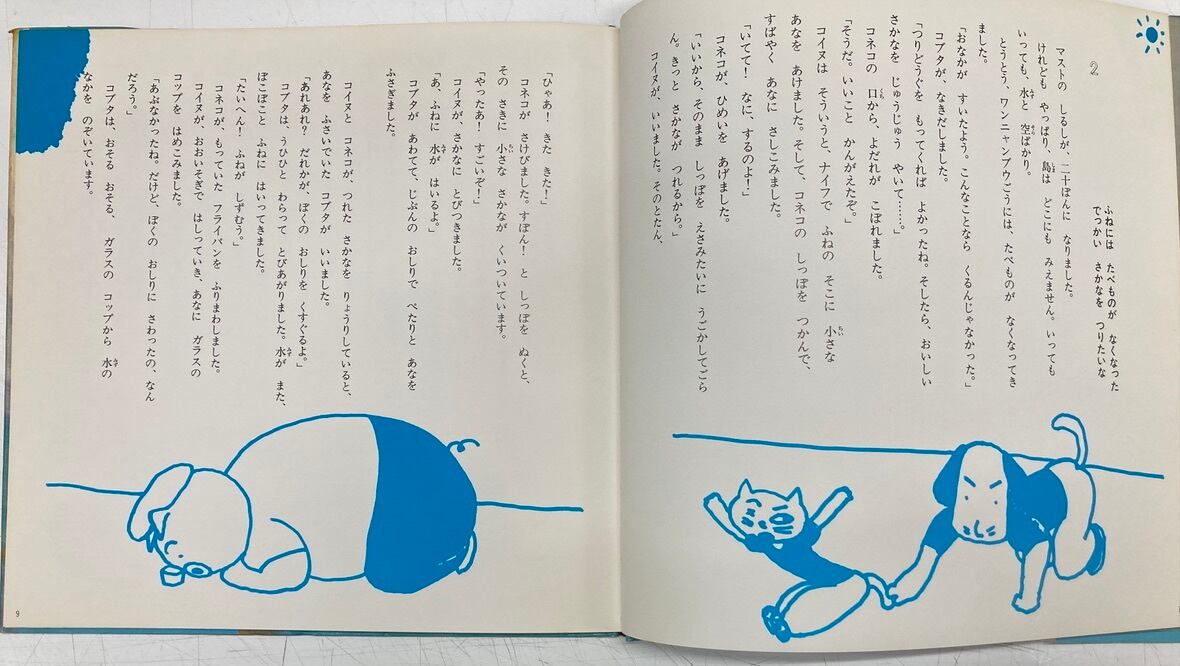 2
ふねには たべものが なくなった
でっかい さかなを つりたいな
マストの しるしが、二十ぽんに なりました。
けれども やっぱり、島は どこにも みえません。いっても
いっても、水と 空ばかり。
とうとう、ワンニャンブウごうには、たべものが なくなってき
ました。
「おなかが すいたよう。こんなことなら くるんじゃなかった。」
コブタが、なきだしました。
「つりどうぐを もってくれば よかったね。そしたら、おいしい
さかなを じゅうじゅう やいて……。」
コネコの 口から、よだれが こぼれました。
「そうだ。いいこと かんがえたぞ。」
コイヌは そういうと、ナイフで ふねの そこに 小さな
あなを あけました。そして、コネコの しっぽを つかんで、
すばやく あなに さしこみました。
「いてて！ なに、するのよ！」
コネコが、ひめいを あげました。
「いいから、そのまま しっぽを えさみたいに うごかしてごら
ん。きっと さかなが つれるから。」
コイヌが、いいました。そのとたん、
「ひゃあ！ きた きた！」
コネコが さけびました。すぽん！ と しっぽを ぬくと、
その さきに 小さな さかなが くいついています。
「やったあ！ すごいぞ！」
コイヌが、さかなに とびつきました。
「あ、ふねに 水が はいるよ。」
コブタが あわてて、じぶんの おしりで ぺたりと あなを
ふさぎました。
コイヌと コネコが、つれた さかなを りょうりしていると、
あなを ふさいでいた コブタが いいました。
「あれあれ？ だれかが、ぼくの おしりを くすぐるよ。」
コブタは、うひひと わらって とびあがりました。水が また、
ぼこぼこと ふねに はいってきました。
「たいへん！ ふねが しずむう。」
コネコが、もっていた フライパンを ふりまわしました。
コイヌが、おおいそぎで はしっていき、あなに ガラスの
コップを はめこみました。
「あぶなかったね。だけど、ぼくの おしりに さわったの、なん
だろう。」
コブタは、おそる おそる、ガラスの コップから 水の
なかを のぞいています。
9